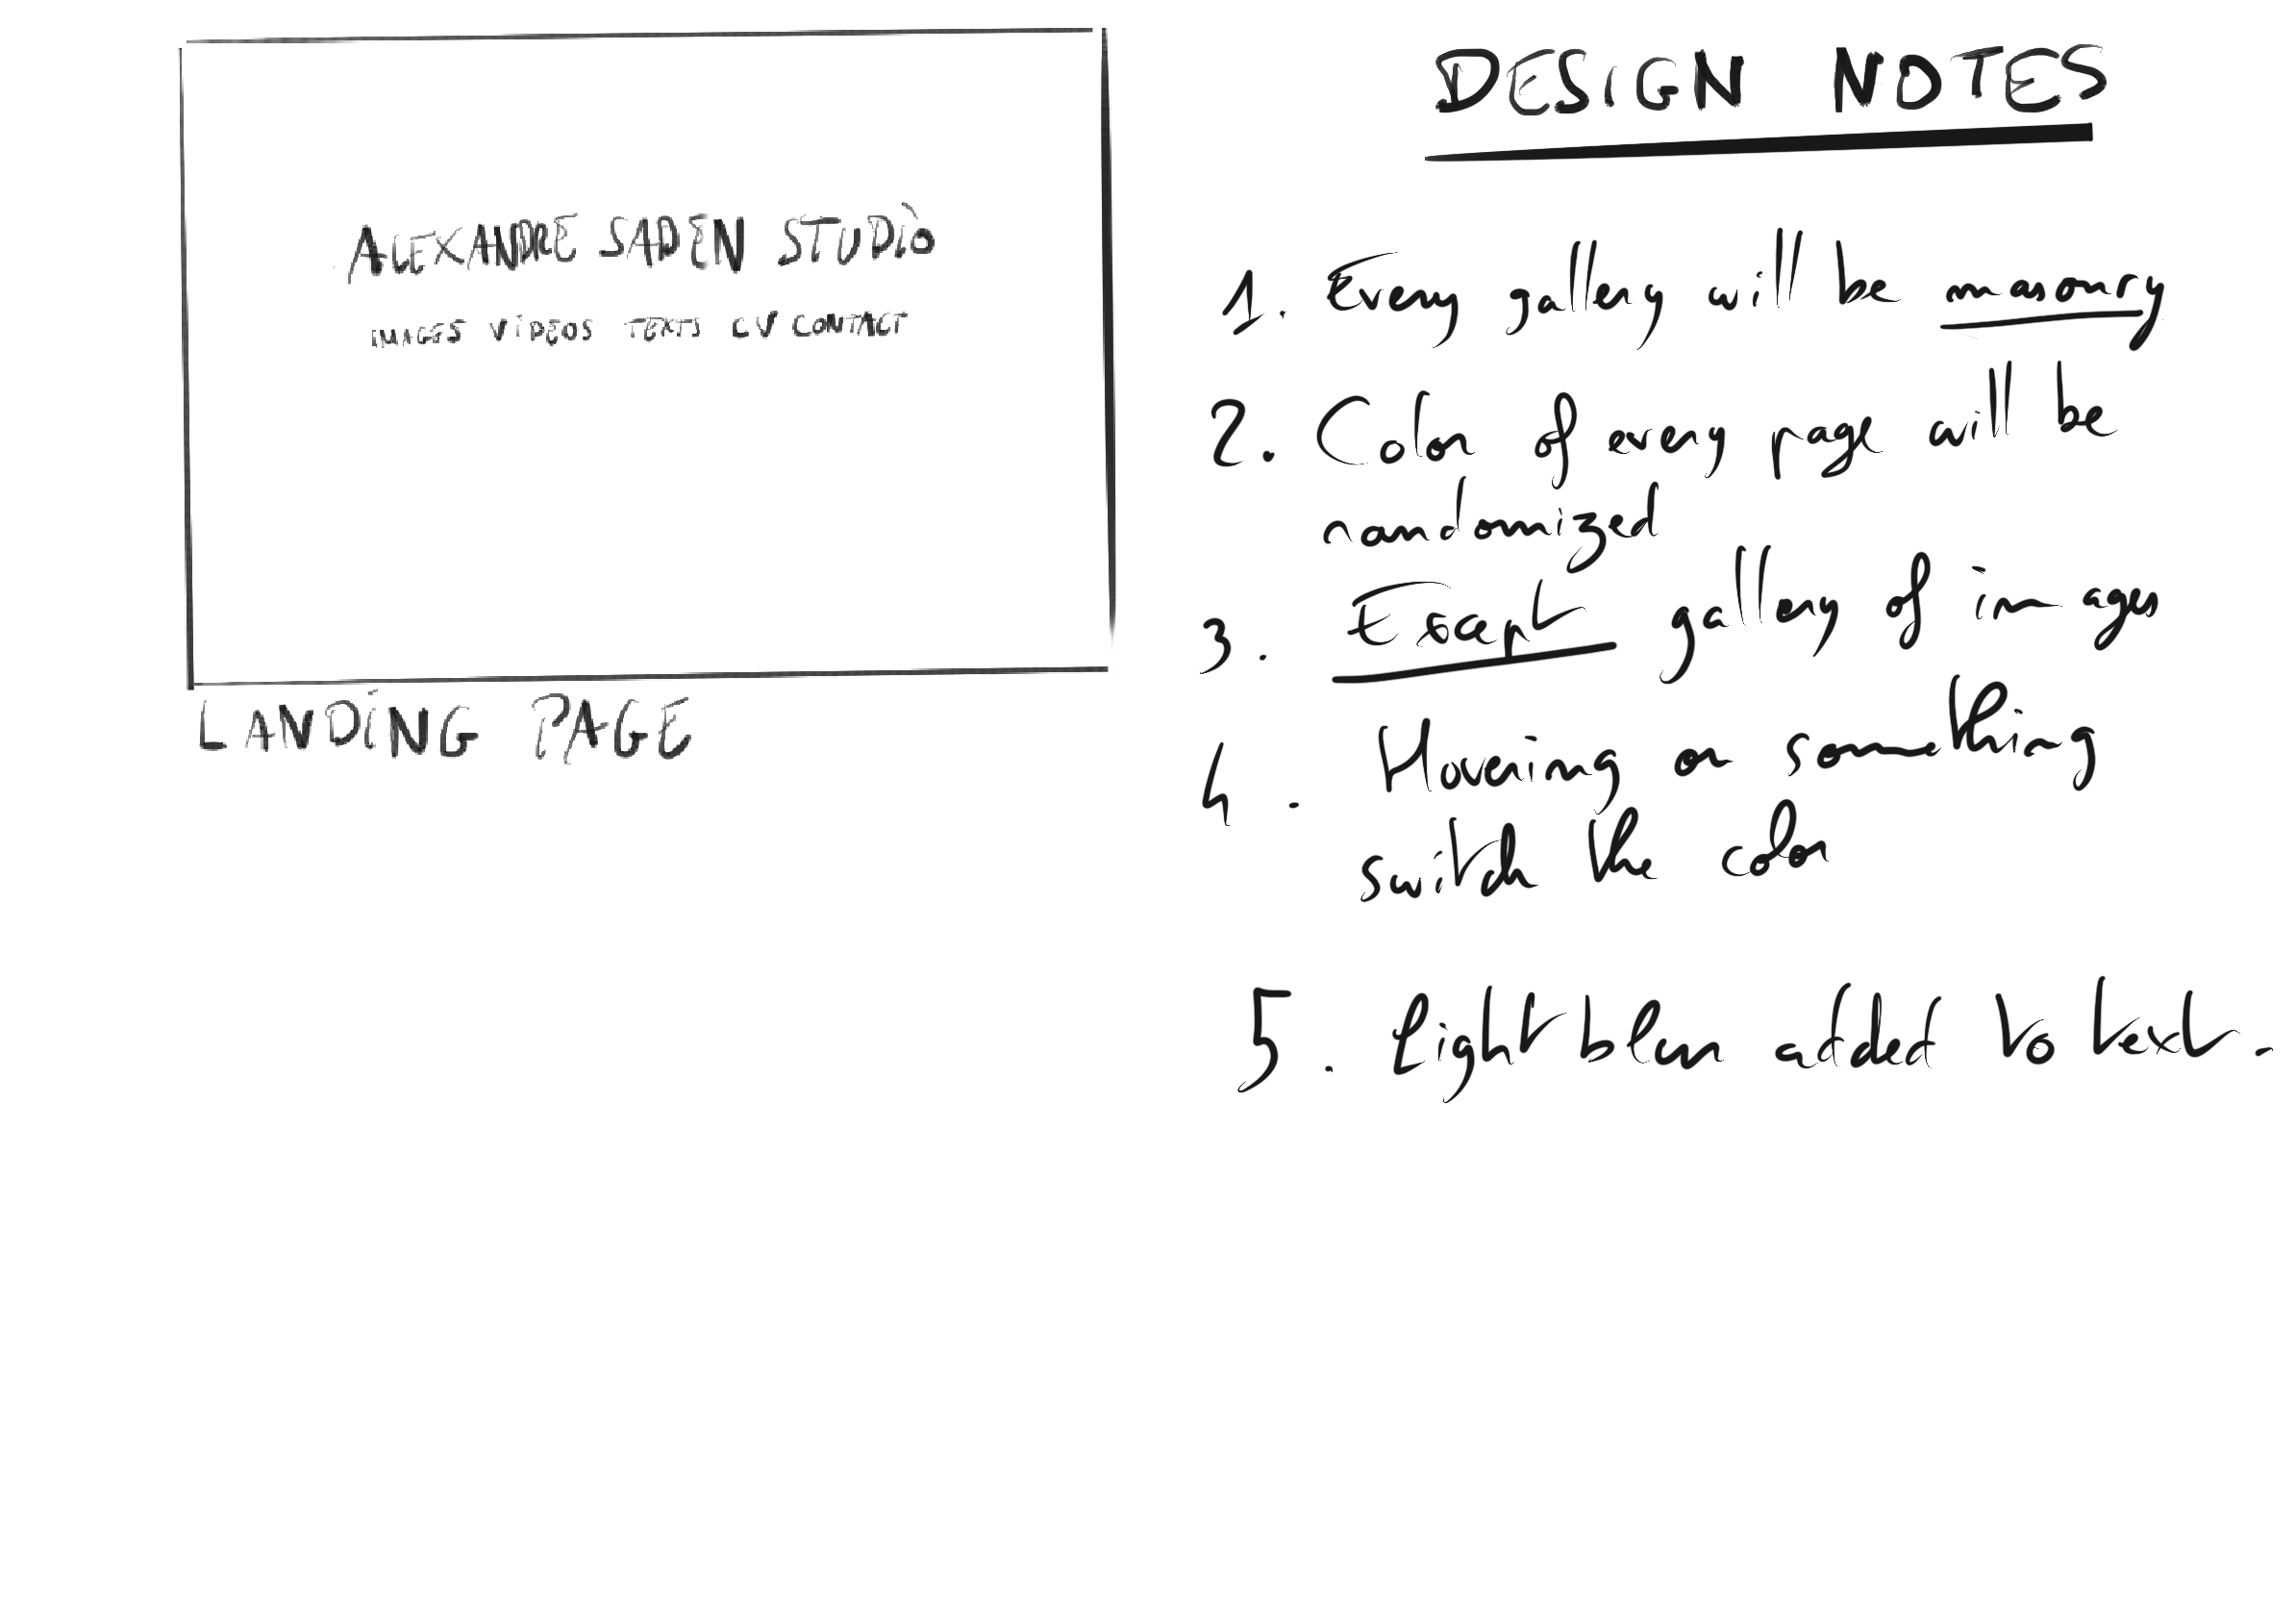 ALEXANDRE SADEN STUDIO
IMAGES VIDEOS TEXTS CV CONTACT
LANDING PAGE
DESIGN NOTES
1. Every gallery will be masonry
2. Color of every page will be
randomized
3. Except gallery of images
4. Hovering on something
switch the color
5. Light blur added to text.